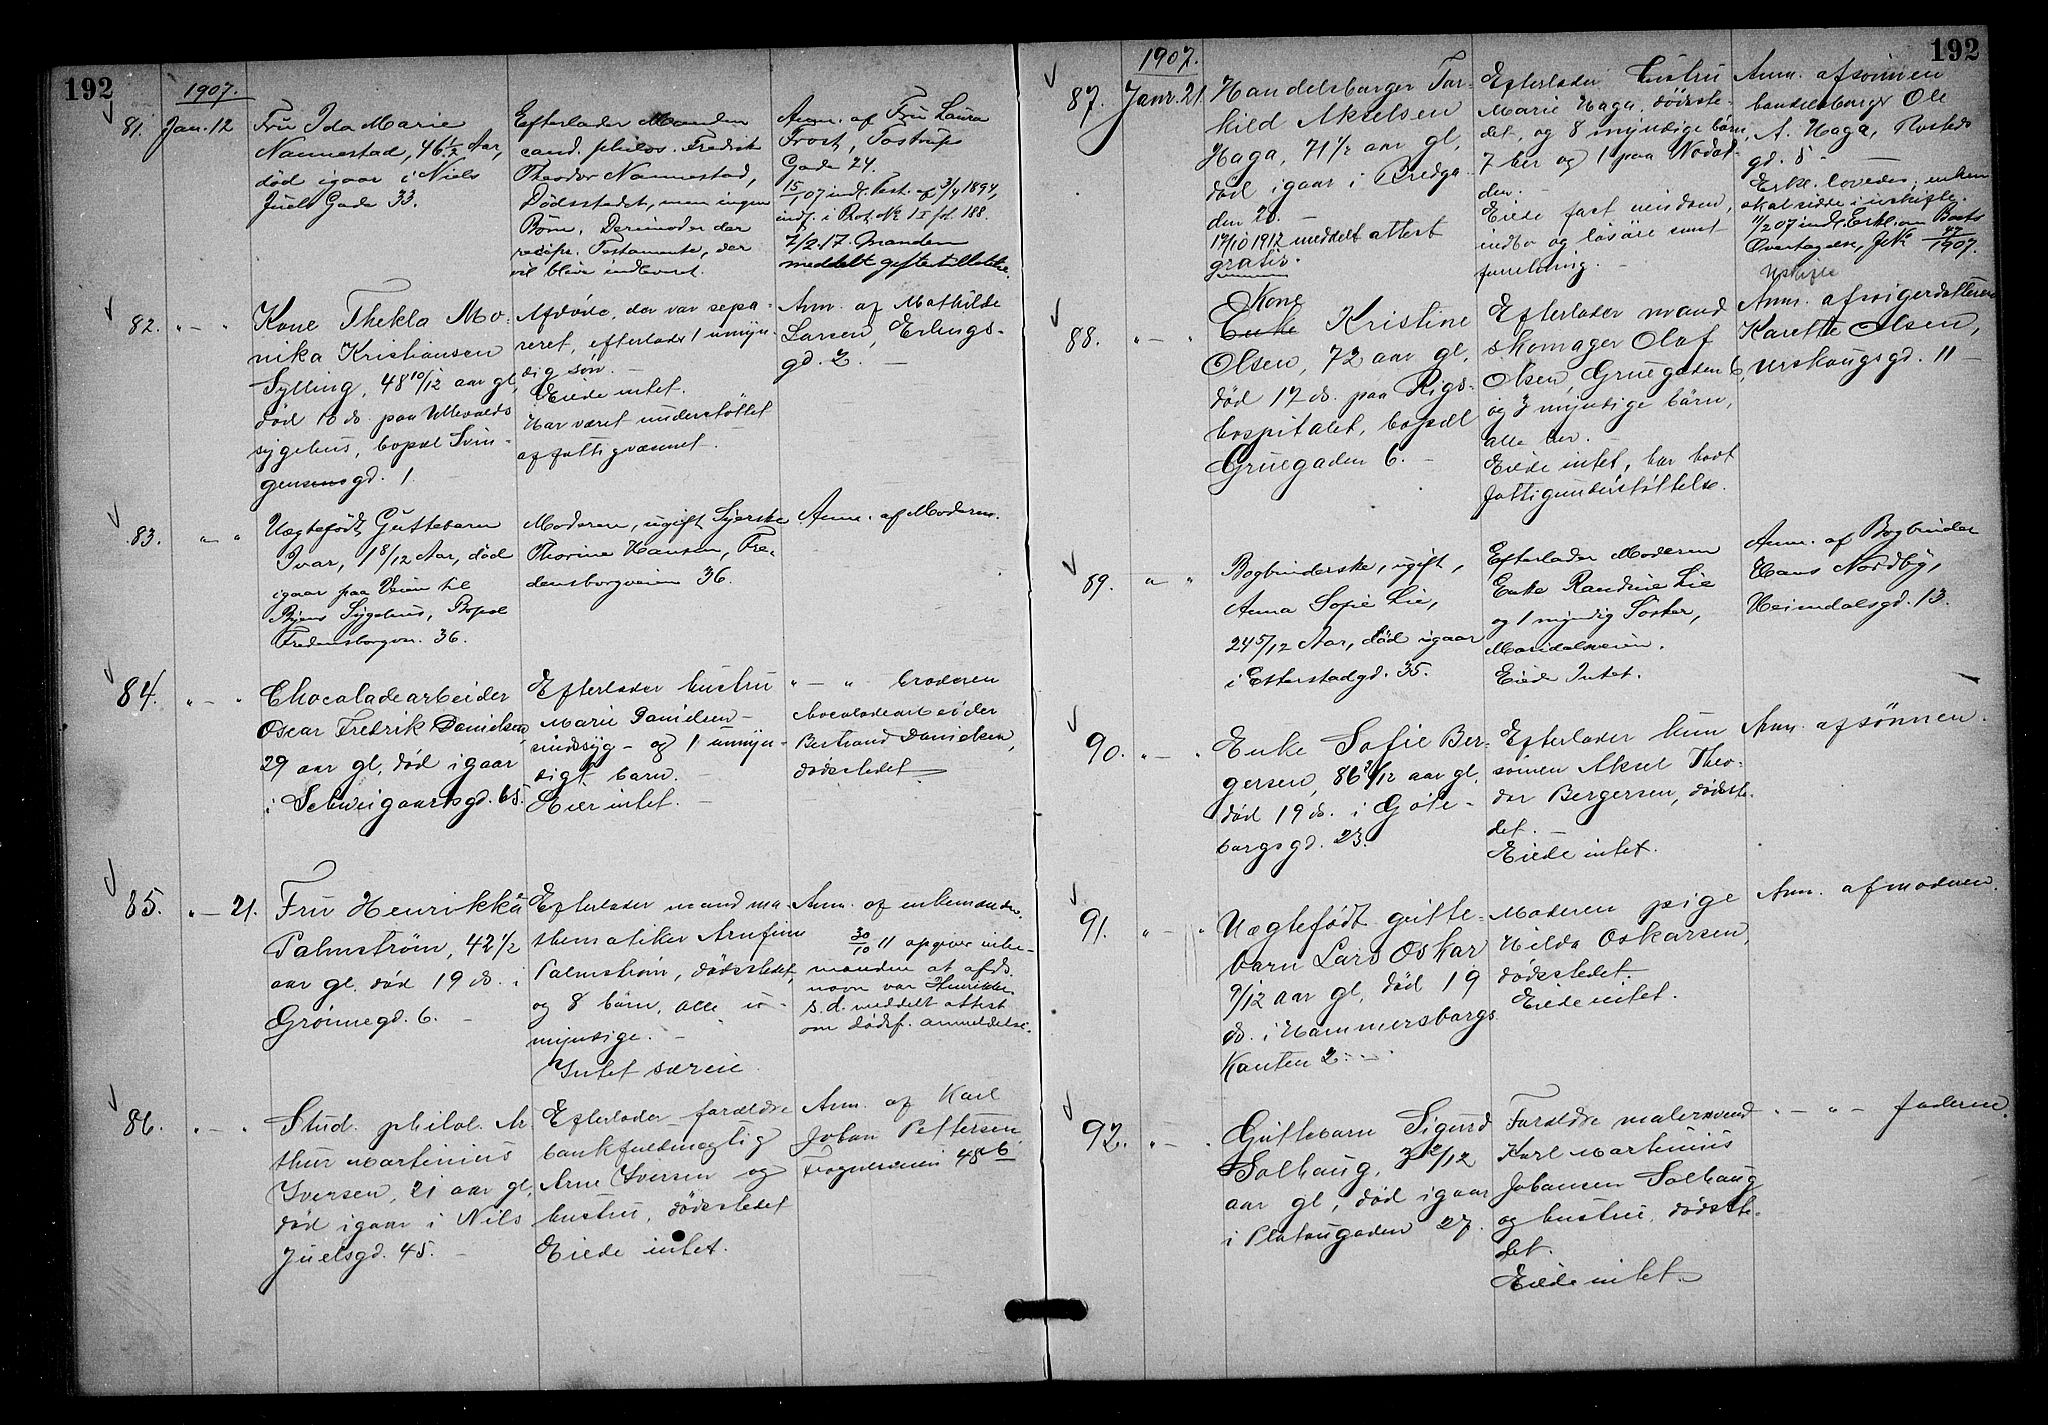 192
1907.
81. Jan. 12
Fru Ida Marie
Nannestad, 46 1/2 Aar,
død igaar i Niels
Juels Gade 33.
Efterlader Manden
cand. philos. Fredrik
Theodor Nannestad,
Dødsstedet, men ingen
Børn. Derimoder der
recipr. Testamente, der
vil blive indleveret.
Anm. af Fru Laura
Frost, Tostrups
Gade 24.
15/1 07 indl. Test. af 3/4 1894,
indf. i Prot. No 1 fol. 188.
7/2.17. Manden
meddelt giftetilladelse.
82. " — "
Kone Thekla Mo-
nika Kristiansen
Sylling, 48 10/12 aar gl,
død 18 ds. paa Ullevolds
sygehus, bopæl Svin-
gensgd. 1.
Afdøde, der var sepa-
reret, efterlader 1 umyn-
dig søn. —
Eiede intet. —
Har været understøttet
af fattigvæsenet. —
Anm. af Mathilde
Larsen, Erlings-
gd. 2. —
83. " — "
Uægtefødt Guttebarn
Ivar, 1 8/12 Aar, død
igaar paa Veien til
Byens Sygehus, Bopæl
Fredensborgvn. 36.
Moderen, ugift Syerske
Thorine Hansen, Fre-
densborgveien 36.
Anm. af Moderen.
84. " — "
Chocoladearbeider
Oscar Fredrik Danielsen,
29 aar gl, død igaar
i Schweigaardsgd. 65.
Efterlader hustru
Marie Danielsen —
sindssyg — og 1 umyn-
digt barn. —
Eier intet. —
" — " broderen
chocoladearbeider
Bertrand Danielsen,
dødsstedet.
85. " — 21.
Fru Henrikka
Palmstrøm, 42 1/2
aar gl. død 19 ds. i
Grønnegd. 6. —
Efterlader mand ma-
thematiker Arnfinn
Palmstrøm, dødsstedet,
og 8 børn, alle u-
myndige. —
Intet særeie.
Anm. af enkemanden.
30/10 11 opgiver enke-
manden at afds.
navn var Henrikke.
s. d. meddelt attest
om dødsf. anmeldelse.
86. " — "
Stud. philol. Ar-
thur Martinius
Iversen, 21 aar gl,
død igaar i Nils
Juelsgd. 45. —
Efterlader forældre
bankfuldmægtig
Arne Iversen og
hustru, dødsstedet
Eiede intet.
Anm. af Karl
Johan Pettersen,
Frognerveien 48 b
192
1907.
87. Janr. 21.
Handelsborger Tor-
kild Akselsen
Haga, 71 1/2 aar gl,
død igaar i Bredga-
den 20.
17/10 1912 meddelt attest
gratis.
Efterlader hustru
Marie Haga, dødsste-
det, og 8 myndige børn,
7 her og 1 paa Nodod-
den. —
Eiede fast eiendom,
indbo og løsøre samt
forretning. —
Anm. af sønnen
handelsborger Ole
A. Haga, Rosteds
gd. 5 —
Erkl. lovedes, enken
skal sidde i uskifte.
11/2 07 indl. Erkl. om Boets
Overtagelse, J. No 47/1907.
Uskifte
88. " — "
Kone
Enke Kristine
Olsen, 72 aar gl,
død 17 ds. paa Rigs-
hospitalet, bopæl
Gruegaden 6. —
Efterlader mand
skomager Olaf
Olsen, Gruegaden 6,
og 3 myndige børn,
alle her. —
Eiede intet, har havt
fattigunderstøttelse.
Anm. af svigerdatteren
Karette Olsen,
Urskougsgd. 11 —
89. " "
Bogbinderske, ugift,
Anna Sofie Lie,
24 5/12 Aar, død igaar
i Etterstadgd. 35.
Efterlader Moderen
Enke Randine Lie
og 1 myndig Søster,
Maridalsveien.
Eiede Intet.
Anm. af Bogbinder
Hans Nordby,
Heimdalsgd. 13.
90. " — "
Enke Sofie Ber-
gersen, 86 3/12 aar gl,
død 19 ds. i Gøte-
borgsgd. 23.
Efterlader kun
sønnen Aksel Theo-
dor Bergersen, dødsste-
det. —
Eiede intet.
Anm. af sønnen.
91. " — "
Uægtefødt gutte-
barn Lars Oskar
9/12 aar gl, død 19
ds. i Hammersborgs
Kanten 2. —
Moderen pige
Hilda Oskarsen,
dødsstedet.
Eiede intet.
Anm. af moderen.
92. " — "
Guttebarn Sigurd
Solhaug, 3 2/12
aar gl, død igaar
i Platougaden 27.
Forældre malersvend
Karl Martinius
Johansen Solhaug
og hustru, dødsste-
det.
Eiede intet. —
" — " — faderen.